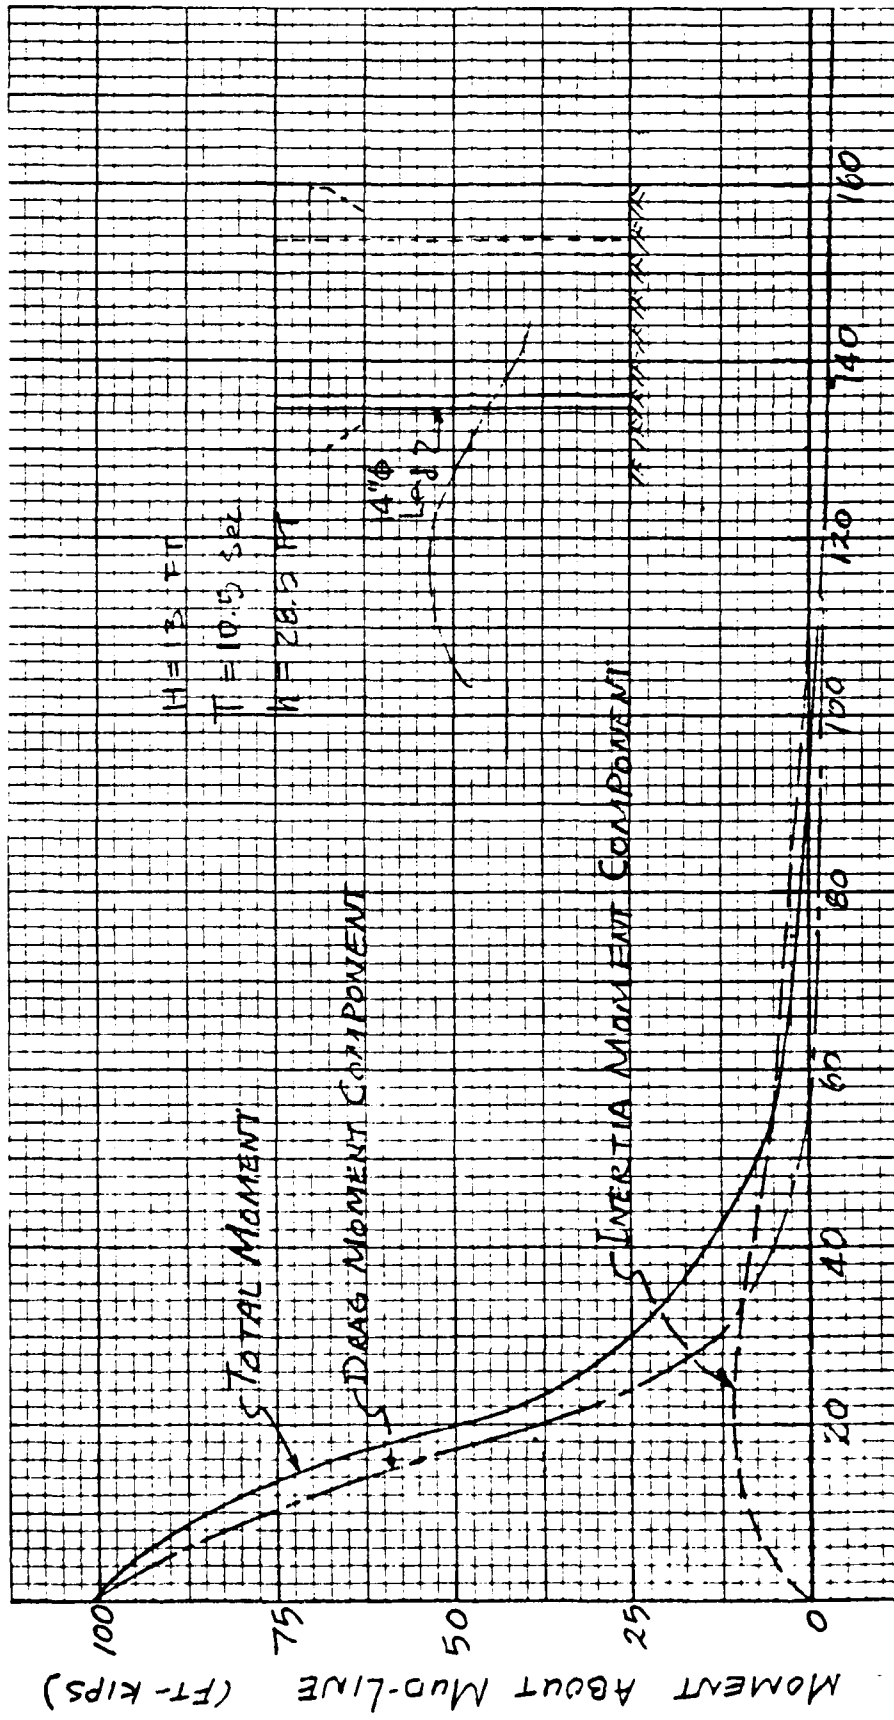 MOMENT ABOUT MUD-LINE (FT-KIPS)
100
75
50
25
0
20
40
60
80
100
120
140
160
TOTAL MOMENT
DRAG MOMENT COMPONENT
INERTIA MOMENT COMPONENT
H = 13 FT
T = 10.5 Sec
h = 28.5 FT
4"φ